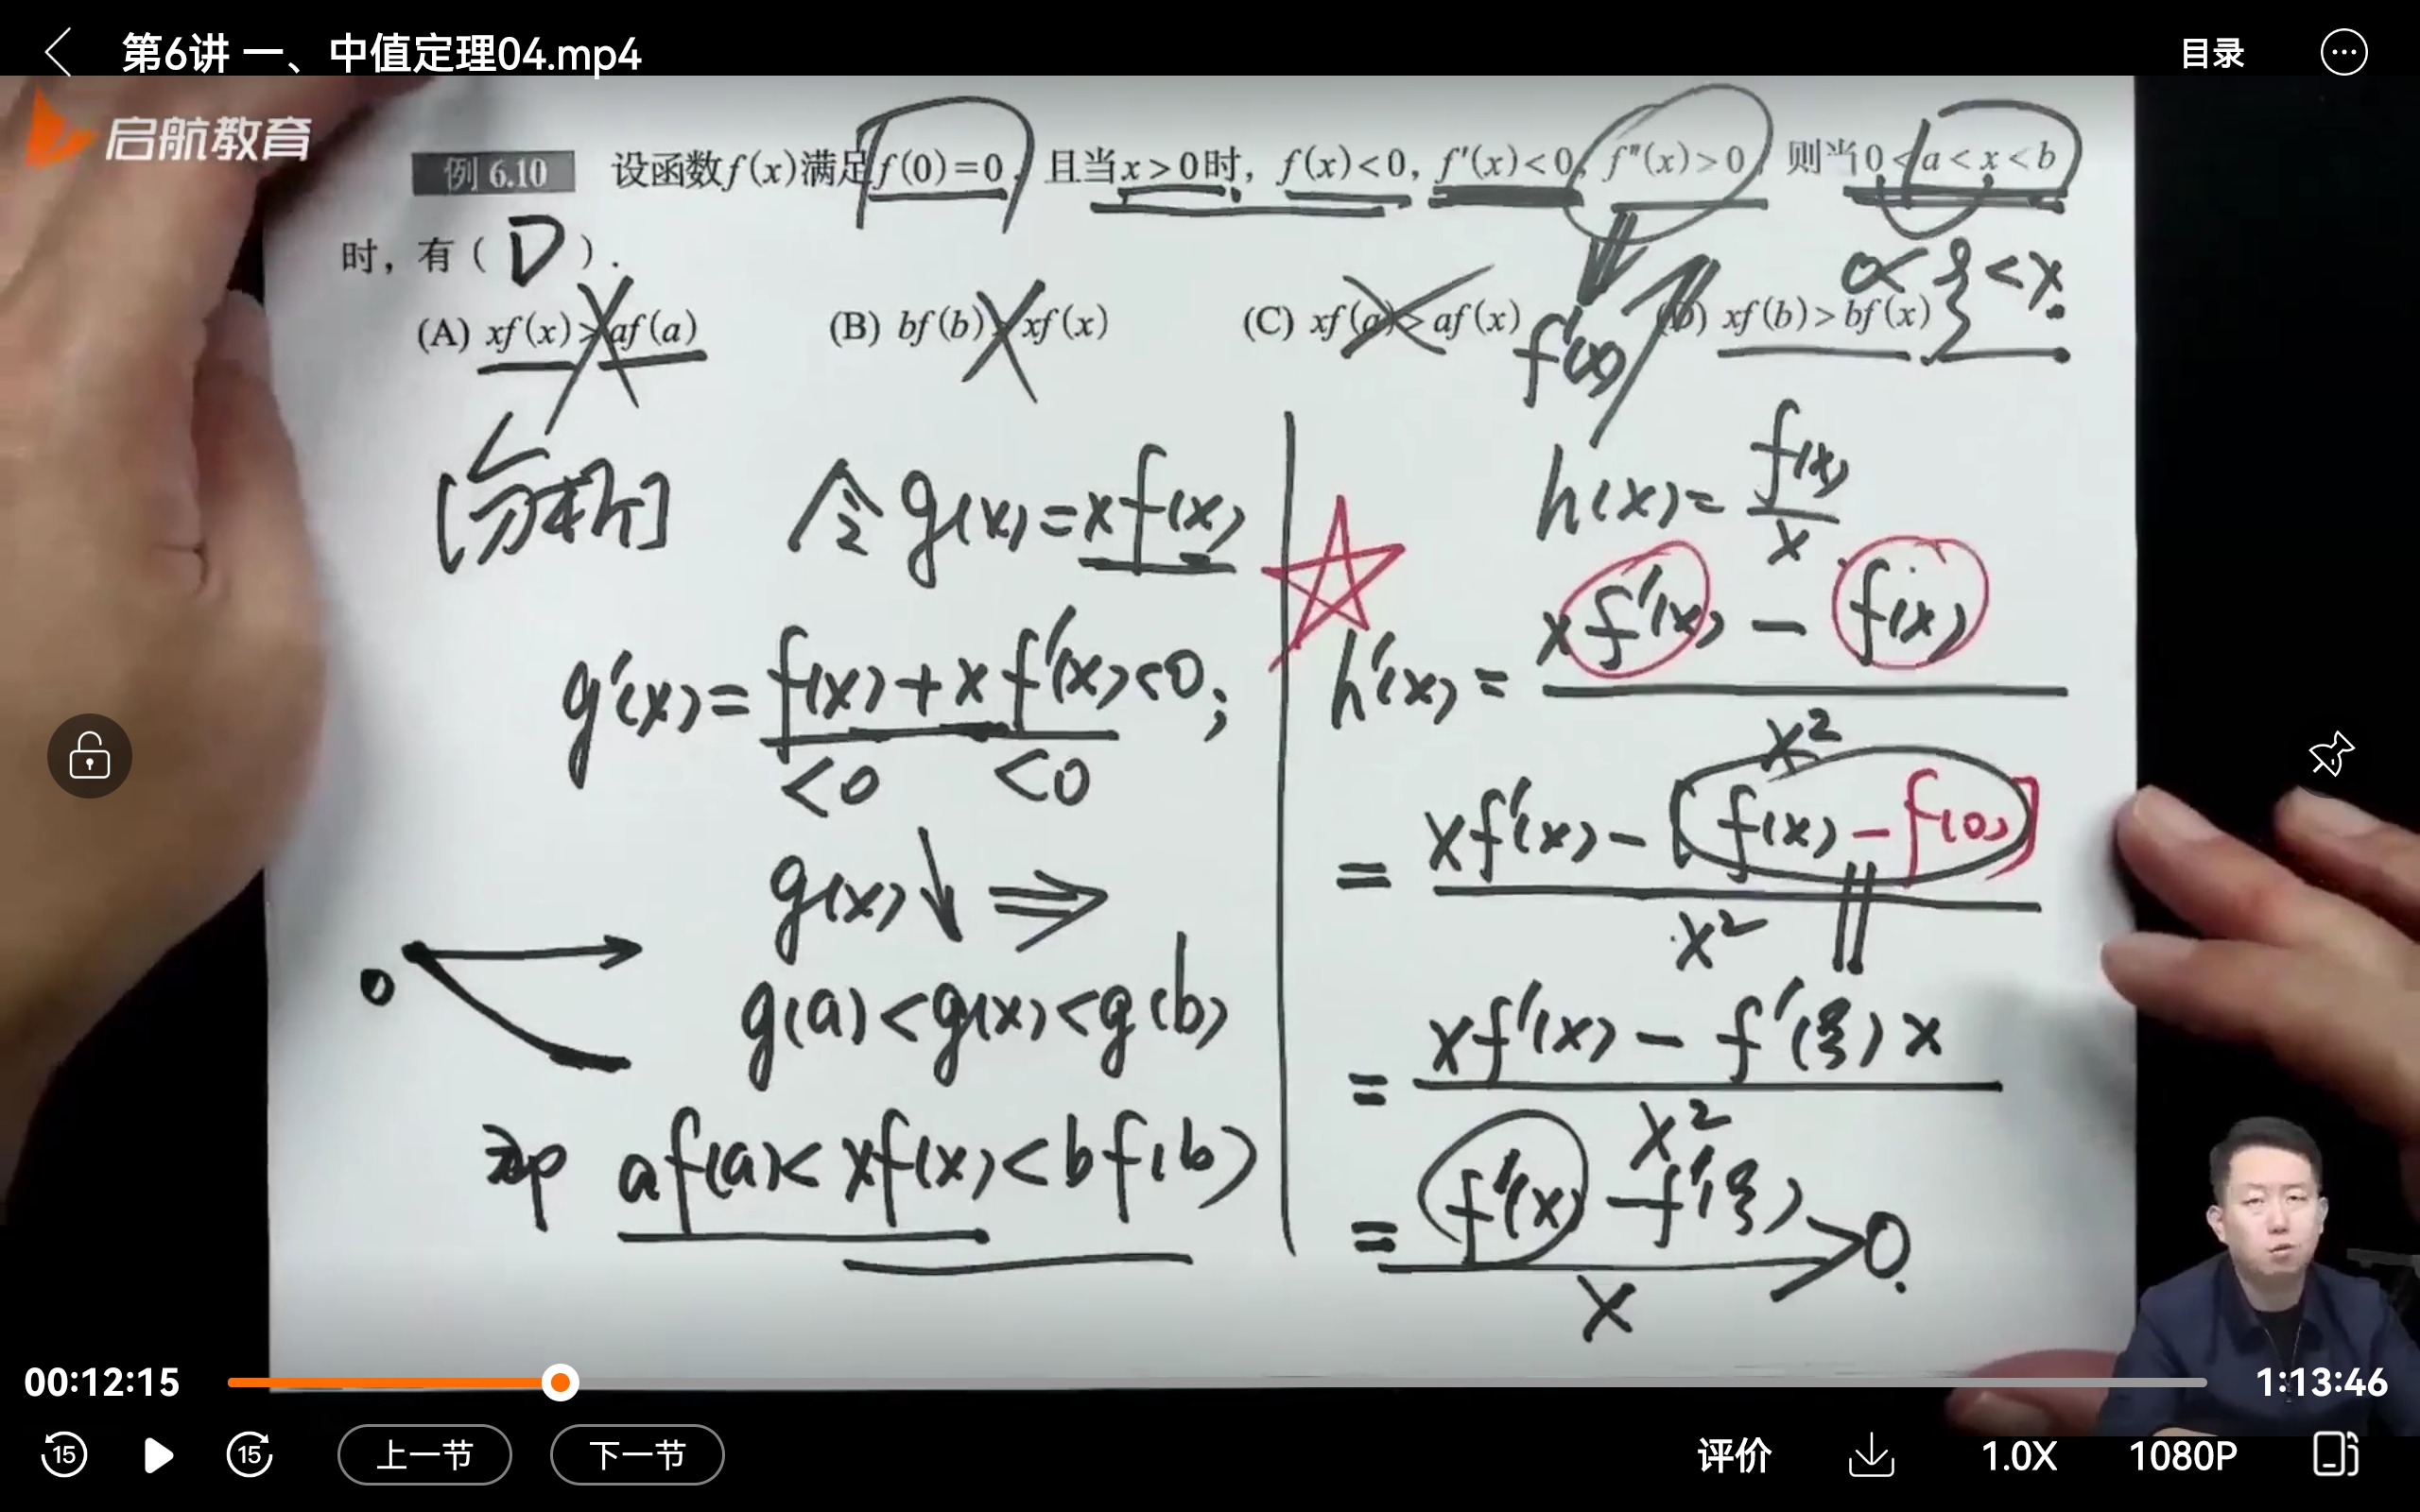 第6讲 一、中值定理04.mp4
目录
启航教育
例 6.10 设函数f(x)满足f(0)=0, 且当x>0时, f(x)<0, f'(x)<0, f''(x)>0, 则当0<a<x<b
时, 有( D ).
0<ξ<x.
(A) xf(x)>af(a) (B) bf(b)>xf(x) (C) xf(a)>af(x) (D) xf(b)>bf(x)
f'(x)
[分析] 令 g(x)=xf(x)
g'(x)=f(x)+xf'(x)<0;
<0 <0
g(x)↓ ⇒
0
g(a)<g(x)<g(b)
即 af(a)<xf(x)<bf(b)
h(x)=f(x)/x
h'(x)=xf'(x)-f(x)/x²
=xf'(x)-[f(x)-f(0)]/x²
=xf'(x)-f'(ξ)x/x²
=f'(x)-f'(ξ)/x>0.
00:12:15
1:13:46
15
15
上一节
下一节
评价
1.0X
1080P